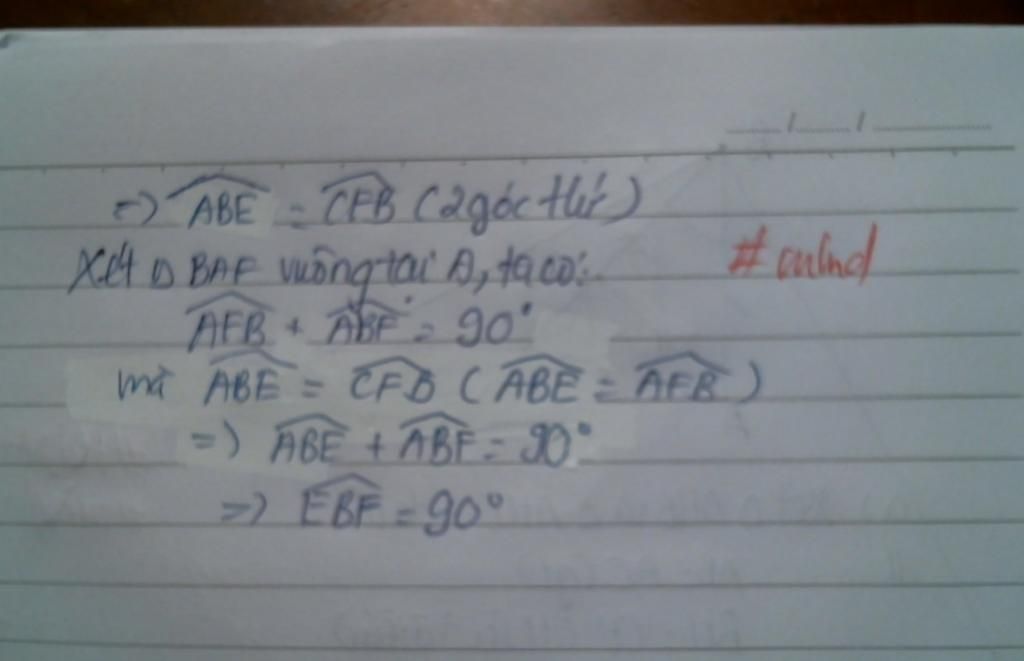 =) ABE = CFB (2 góc t/ứ)
Xét Δ BAF vuông tại A, ta có:
AFB + ABF = 90°
mà ABE = CFB (ABE = AFB)
=) ABE + ABF = 90°
=) EBF = 90°